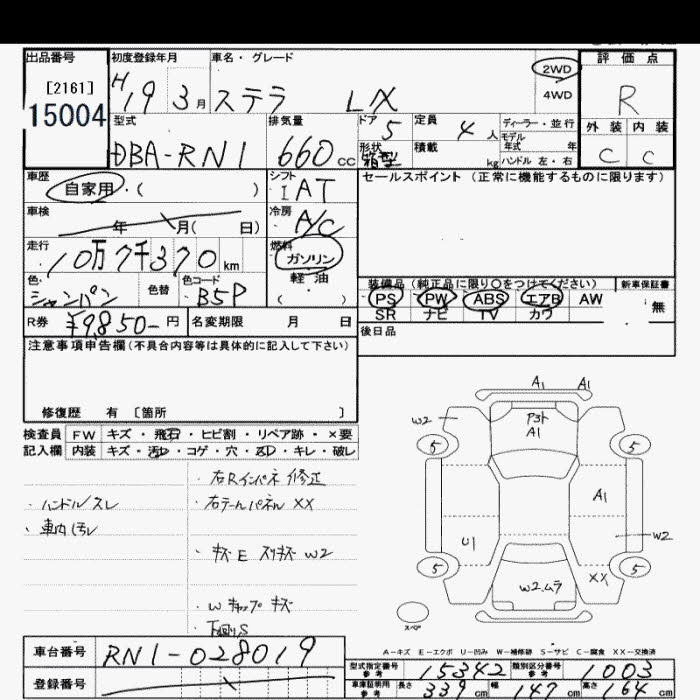 出品番号 初度登録年月 車名・グレード 評価点
[2161] 15004
H19 3月 ステラ LX 2WD 4WD R
型式 排気量 ドア 5 定員 4人 ディーラー・並行 外装 内装
DBA-RN1 660cc 形状 箱型 積載 kg モデル年式 年 C C
ハンドル 左・右
車歴 自家用・( ) シフト IAT セールスポイント (正常に機能するものに限ります)
車検 年 月( 日) 冷房 A/C
走行 10万7千370km 燃料 ガソリン 軽油 ( )
色 シャンパン 色替 色コード B5P 装備品 (純正品に限り〇をつけてください) 新車保証書
PS PW ABS エアB AW 無
SR ナビ TV カワ
R券 ¥9850-円 名変期限 月 日 後日品
注意事項申告欄(不具合内容等は具体的に記入して下さい)
修復歴 有 〔箇所 〕
検査員 FW キズ・飛石・ヒビ割・リペア跡・×要
記入欄 内装 キズ・汚レ・コゲ・穴・スレ・キレ・破レ
・ハンドルスレ
・車内汚レ
・右Rインパネ修正
・右テールパネルXX
・キズE スリキズW2
・Wキャップキズ
・下廻りS
A1 A1
W2 P3ト A1
5 5
A1
U1 W2
5 5
W2.ムラ XX
スペア
A-キズ E-エクボ U-凹み W-補修跡 S-サビ C-腐食 XX-交換済
車台番号 RN1-028019
登録番号
型式指定番号 参考 15342 類別区分番号 参考 1003
車庫証明用 参考 長さ 339cm 幅 147cm 高さ 164cm